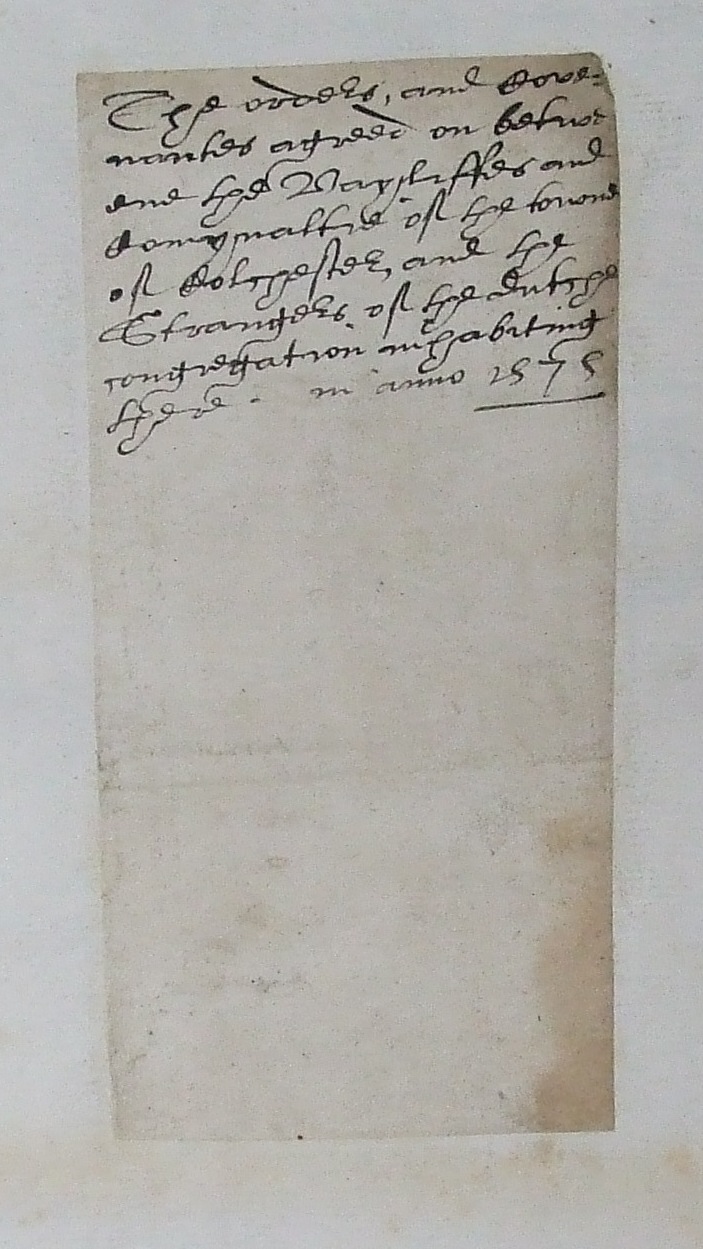 The orders, and Cove-
nantes agreed on betwe
ene the Bayliffes and
Comynaltie of the towne
of Colchester, and the
Strangers of the dutche
congregation inhabiting
there. in anno 1575